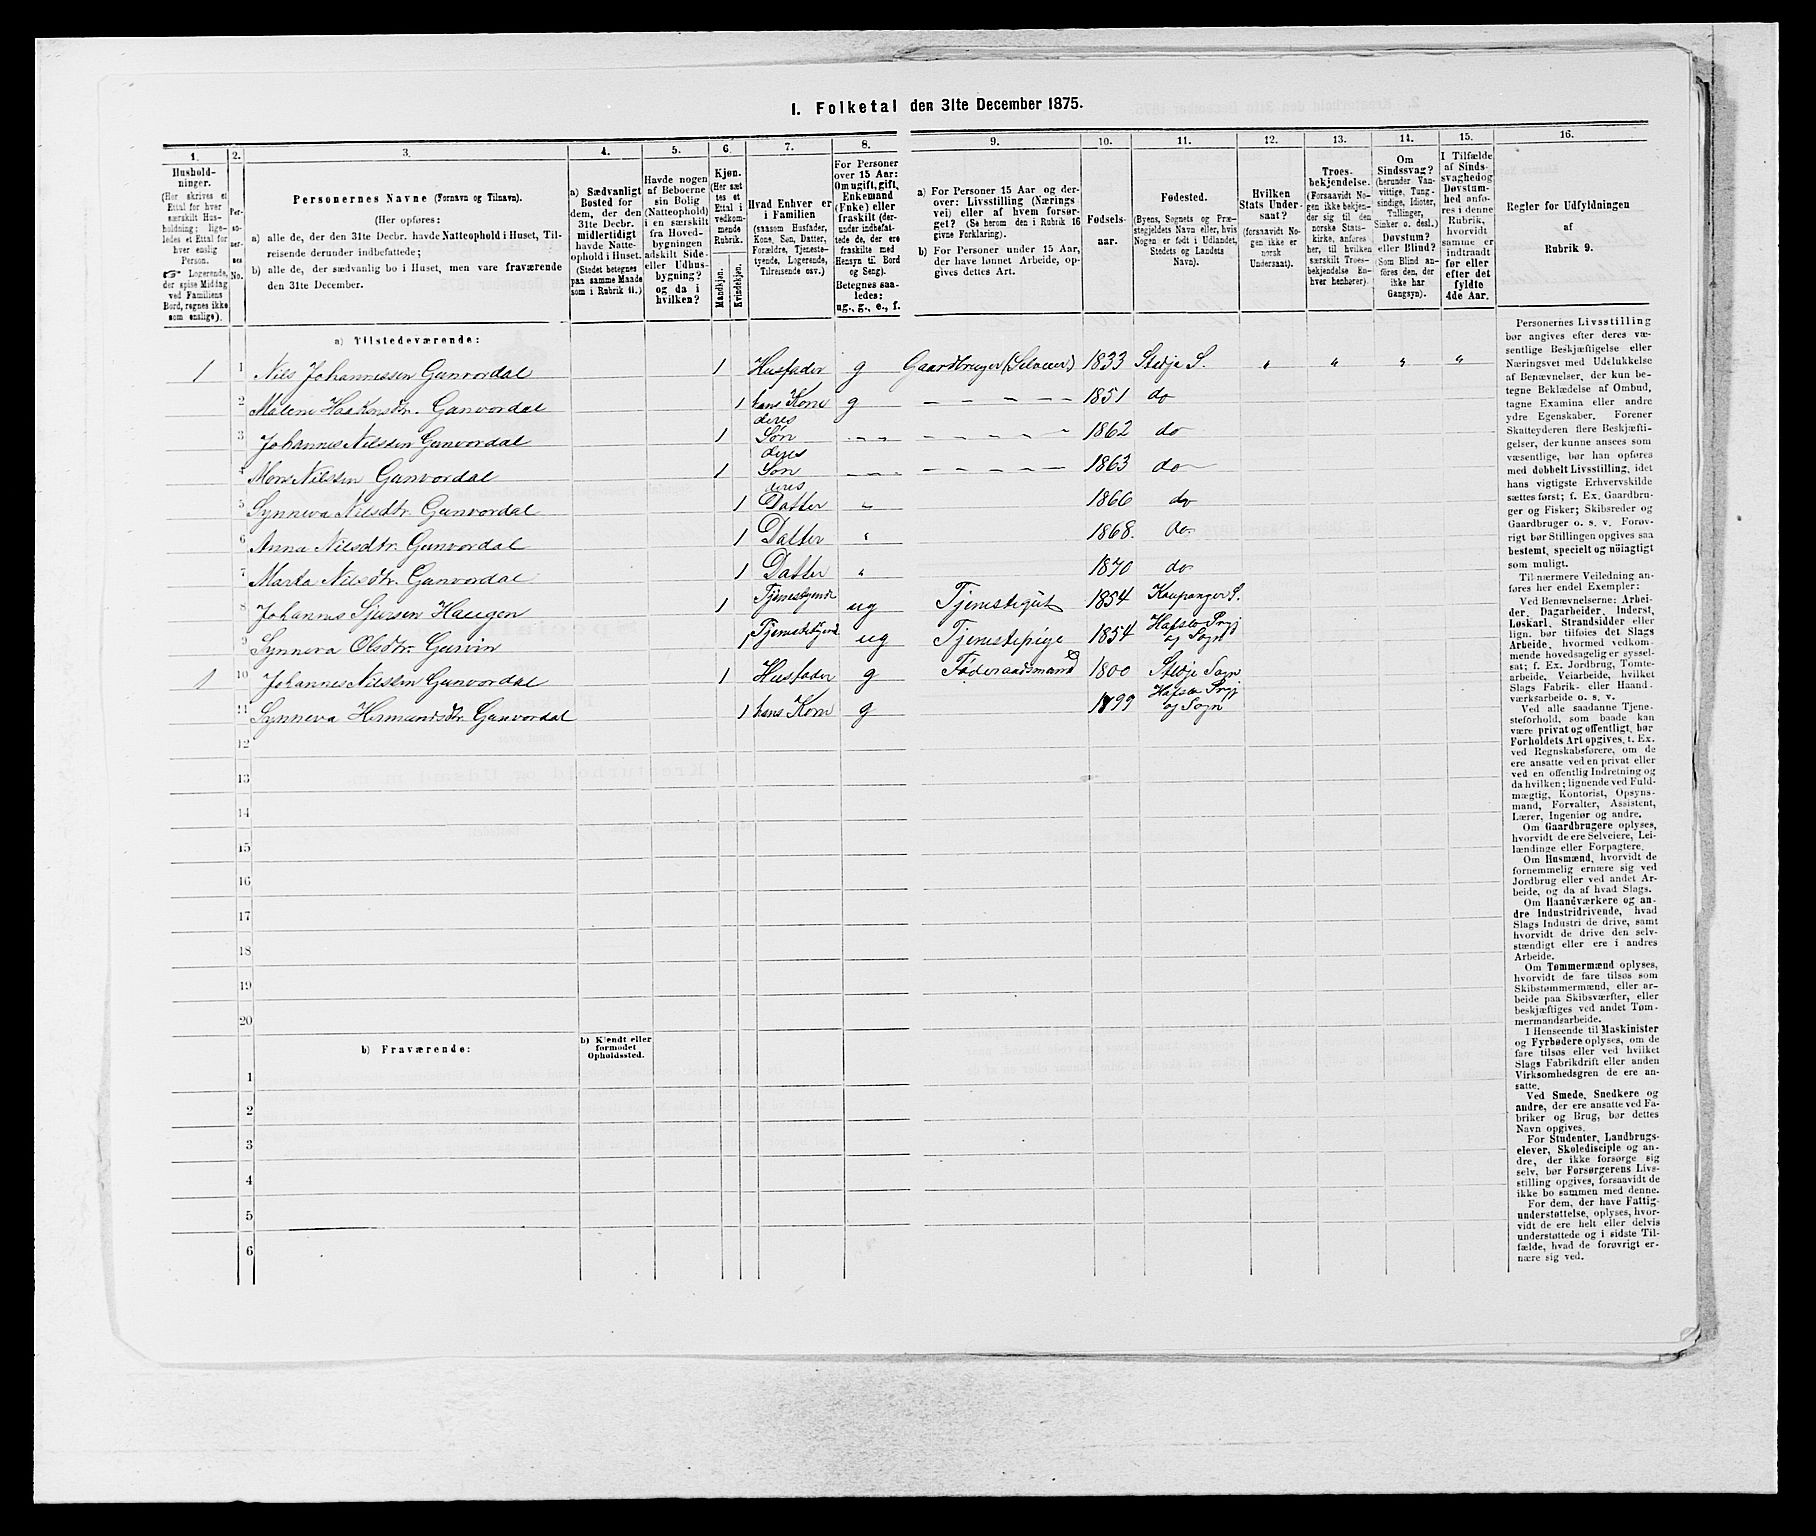 1. Folketal den 31te December 1875.
1. 2. 3. 4. 5. 6. 7. 8. 9. 10. 11. 12. 13. 14. 15. 16.
Hushold-
ninger.
(Her skrives et
Ettal for hver
særskilt Hus-
holdning; lige-
ledes et Ettal for
hver enslig
Person.
☞ Logerende,
der spise Middag
ved Familiens
Bord, regnes ikke
som enslige).
Per-
so-
ner-
nes
No.
Personernes Navne (Fornavn og Tilnavn).
(Her opføres:
a) alle de, der den 31te Decbr. havde Natteophold i Huset, Til-
reisende derunder indbefattede;
b) alle de, der sædvanlig bo i Huset, men vare fraværende
den 31te December.
a) Sædvanligt
Bosted for
dem, der den
31te Decbr.
midlertidigt
havde Natte-
ophold i Huset.
(Stedet betegnes
paa samme Maade
som i Rubrik 11.)
Havde nogen
af Beboerne
sin Bolig
(Natteophold)
i en særskilt
fra Hoved-
bygningen
adskilt Side-
eller Udhus-
bygning?
og da i
hvilken?
Kjøn.
(Her sæt-
tes et
Ettal i
vedkom-
mende
Rubrik.
Mandkjøn.
Kvindekjøn.
Hvad Enhver er
i Familien
(saasom Husfader,
Kone, Søn, Datter,
Forældre, Tjeneste-
tyende, Logerende,
Tilreisende osv.)
For Personer
over 15 Aar:
Om ugift, gift,
Enkemand
(Enke) eller
fraskilt (der-
under indbefat-
tede de, der ere
fraskilte med
Hensyn til Bord
og Seng).
Betegnes saa-
ledes:
ug., g., e., f.
a) For Personer 15 Aar og der-
over: Livsstilling (Nærings-
vei) eller af hvem forsør-
get? (Se herom den i Rubrik 16
givne Forklaring).
b) For Personer under 15 Aar,
der have lønnet Arbeide, op-
gives dettes Art.
Fødsels-
aar.
Fødested.
(Byens, Sognets og Præ-
stegjeldets Navn eller, hvis
Nogen er født i Udlandet,
Stedets og Landets
Navn).
Hvilken
Stats Under-
saat?
(forsaavidt No-
gen ikke er
norsk
Undersaat).
Troes-
bekjendelse.
(Forsaavidt No-
gen ikke bekjen-
der sig til den
norske Stats-
kirke, anføres
her, til hvilken
særskilt Troes-
bekjendelse En-
hver henhører).
Om
Sindssvag?
(herunder Van-
vittige, Tung-
sindige, Idioter,
Tullinger,
Sinker o. desl.)
Døvstum?
eller Blind?
(Som Blind an-
føres den, der
ikke har
Gangsyn).
I Tilfælde
af Sinds-
svaghed og
Døvstum-
hed anfø-
res i denne
Rubrik,
hvorvidt
samme er
indtraadt
før eller
efter det
fyldte
4de Aar.
Regler for Udfyldningen
af
Rubrik 9.
a) Tilstedeværende:
1 1 Nils Johannessen Gunvordal 1 Husfader g Gaardbruger (Selveier) 1833 Stedje S. " " " "
2 Malene Haakensdtr. Gunvordal 1 hans Kone g – – – – – 1851 do
3 Johannes Nilssen Gunvordal 1 deres Søn – – – – – – – – 1862 do
4 Mons Nilssen Gunvordal 1 deres Søn – – – – – – – – 1863 do
5 Synneva Nilsdtr. Gunvordal 1 deres Datter " 1866 do
6 Anna Nilsdtr. Gunvordal 1 Datter " 1868. do
7 Marta Nilsdtr. Gunvordal 1 Datter " 1870 do
8 Johannes Sjursen Haugen 1 Tjenesttyende ug Tjenestegut 1854 Kaupanger S.
9 Synneva Olsdtr. 1 ug Tjenestepige 1854 Hafslo Prgj og Sogn
1 10 Johannes Nilssen Gunvordal 1 Husfader g Føderaadsmand 1800 Stedje Sogn
11 Synneva Hermundsdtr. Gunvordal 1 hans Kone g 1799 Hafslo Prgj og Sogn
12
13
14
15
16
17
18
19
20
b) Fraværende:
b) Kjendt eller
formodet
Opholdssted.
1
2
3
4
5
6
Personernes Livsstilling
bør angives efter deres væ-
sentlige Beskjæftigelse eller
Næringsvei med Udelukkelse
af Benævnelser, der kun be-
tegne Beklædelse af Ombud,
tagne Examina eller andre
ydre Egenskaber. Forener
Skatteyderen flere Beskjæfti-
gelser, der kunne ansees som
væsentlige, bør han opføres
med dobbelt Livsstilling, idet
hans vigtigste Erhvervskilde
sættes først; f. Ex. Gaardbru-
ger og Fisker; Skibsreder og
Gaardbruger o. s. v. Forøv-
rigt bør Stillingen opgives saa
bestemt, specielt og nöiagtigt
som muligt.
Til nærmere Veiledning an-
føres her endel Exempler:
Ved Benævnelserne: Arbei-
der, Dagarbeider, Inderst,
Løskarl, Strandsidder eller
lign. bør tilføies det Slags
Arbeide, hvormed vedkom-
mende hovedsagelig er syssel-
sat; f. Ex. Jordbrug, Tomte-
arbeide, Veiarbeide, hvilket
Slags Fabrik- eller Haand-
værksarbeide o. s. v.
Ved alle saadanne Tjene-
steforhold, som baade kan
være privat og offentligt, bør
Forholdets Art opgives, t. Ex.
ved Regnskabsførere, om de
ere ansatte ved en privat eller
ved en offentlig Indretning og
da hvilken; lignende ved Fuld-
mægtig, Kontorist, Opsyns-
mand, Forvalter, Assistent,
Lærer, Ingeniør og andre.
Om Gaardbrugere oplyses,
hvorvidt de ere Selveiere, Lei-
lændinge eller Forpagtere.
Om Husmænd, hvorvidt de
fornemmelig ernære sig ved
Jordbrug eller ved andet Ar-
beide, og da af hvad Slags.
Om Haandværkere og an-
dre Industridrivende, hvad
Slags Industri de drive, samt
hvorvidt de drive den selv-
stændigt eller ere i andres
Arbeide.
Om Tømmermænd oplyses,
hvorvidt de fare tilsøs som
Skibstømmermænd, eller ar-
beide paa Skibsværfter, eller
beskjæftiges ved andet Tøm-
mermandsarbeide.
I Henseende til Maskinister
og Fyrbødere oplyses, om de
fare tilsøs eller ved hvilket
Slags Fabrikdrift eller anden
Virksomhedsgren de ere an-
satte.
Ved Smede, Snedkere og
andre, der ere ansatte ved Fa-
briker og Brug, bør dettes
Navn opgives.
For Studenter, Landbrugs-
elever, Skoledisciple og an-
dre, der ikke forsørge sig
selv, bør Forsørgerens Livs-
stilling opgives, forsaavidt de
ikke bo sammen med denne.
For dem, der have Fattig-
understøttelse, oplyses, hvor-
vidt de ere helt eller delvis
understøttede og i sidste Til-
fælde, hvad de forøvrigt er-
nære sig ved.